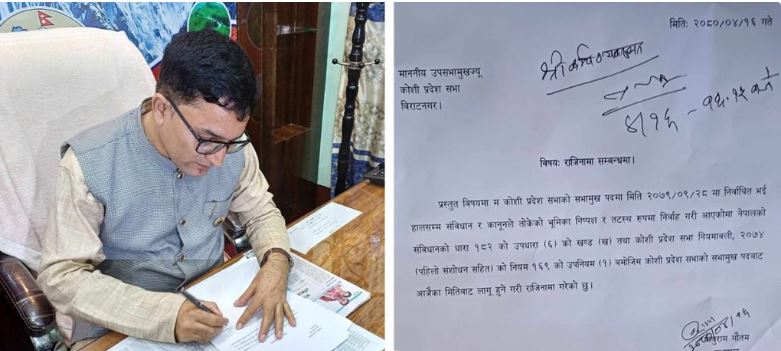 मिति: २०८०/०४/१६ गते
माननीय उपसभामुखज्यू
कोशी प्रदेश सभा
विराटनगर।
विषयः राजिनामा सम्बन्धमा।
प्रस्तुत विषयमा म कोशी प्रदेश सभाको सभामुख पदमा मिति २०७९/०९/२८ मा निर्वाचित भई
हालसम्म संविधान र कानूनले तोकेको भूमिका निष्पक्ष र तटस्थ रुपमा निर्वाह गरी आएकोमा नेपालको
संविधानको धारा १८२ को उपधारा (६) को खण्ड (ख) तथा कोशी प्रदेश सभा नियमावली, २०७४
(पहिलो संशोधन सहित) को नियम १६९ को उपनियम (१) बमोजिम कोशी प्रदेश सभाको सभामुख पदबाट
आजैका मितिबाट लागू हुने गरी राजिनामा गरेको छु।
गौतम